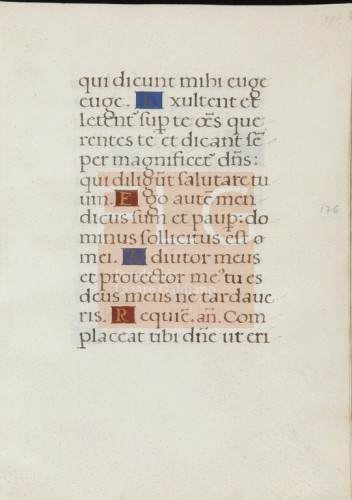 qui dicunt mihi euge
euge. Exultent et
letent᷑ sup̱ te oēs que
rentes te et dicant sē
per magnificet᷑ dn̄s:
qui diligūt salutare tu
um. Ego autē men
dicus sum et paup̱: do
minus sollicitus est o
mei. Adiutor meus
et protector me᷑ tu es
deus meus ne tardaue
ris. Requiē. an̄. Com
placeat tibi dn̄e ut eri
176